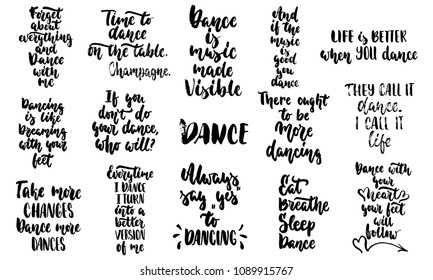 Forget
about
everything
and
Dance
with
me
Time to
dance
on the table.
Champagne.
Dance
is
music
made
Visible
And
if the
music
is
good
you
dance
LIFE is BETTER
when YOU dance
Dancing
is like
Dreaming
with your
feet
If
you
don't do
your dance,
who will?
DANCE
There ought
to be
More
dancing
THEY CALL IT
dance.
I CALL IT
life
Take more
CHANGES
Dance more
DANCES
Everytime
I DANCE
I TURN
into a
better
VERSION
of me
Always
say "yes"
to
DANCING
Eat
Breathe
Sleep
Dance
Dance with
your
heart
your feet
will
follow
shutterstock.com · 1089915767